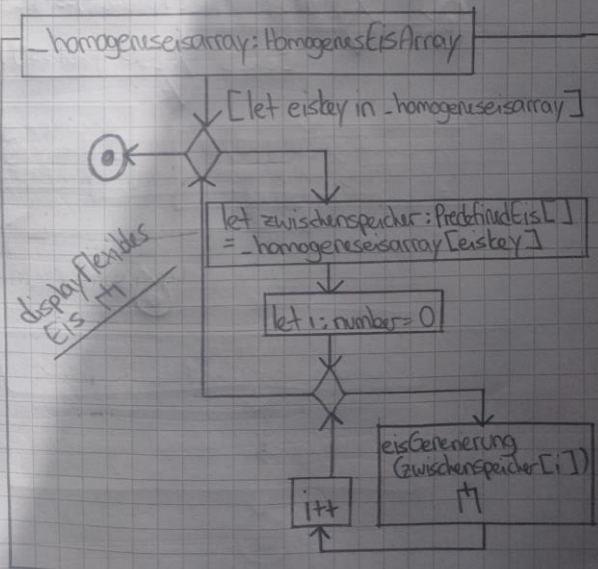 _homogeneseisarray: HomogenesEisArray
[let eiskey in _homogeneseisarray]
let zwischenspeicher: PredefinedEis[]
= _homogeneseisarray[eiskey]
displayflexibles
Eis
let i: number = 0
eisGenerierung
(zwischenspeicher[i])
i++